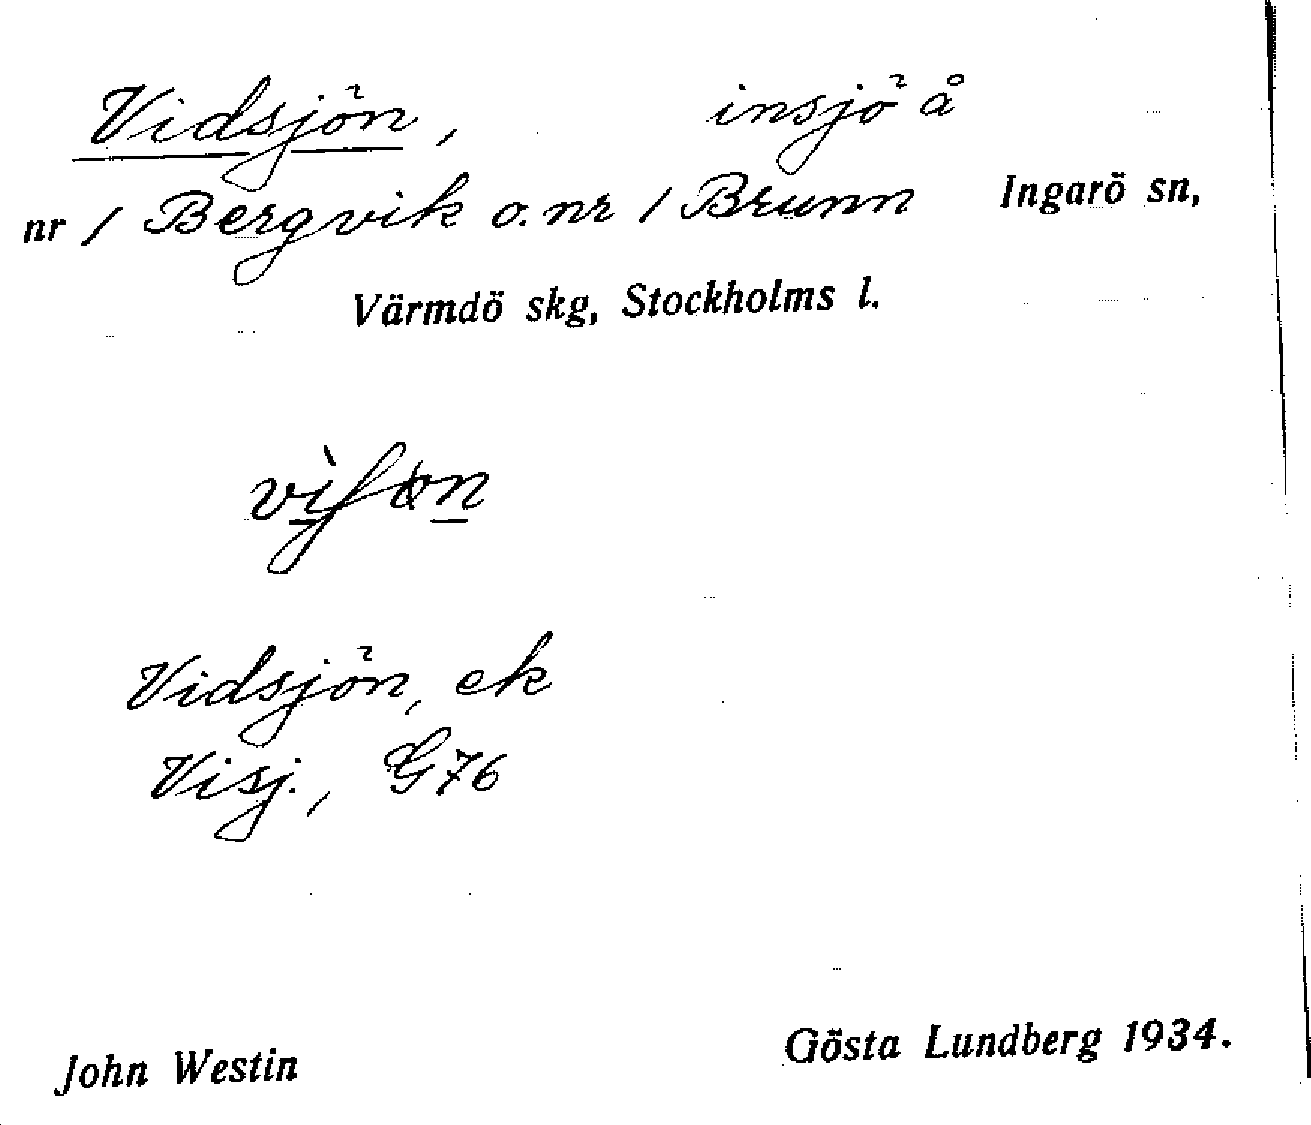 Vidsjön, insjö å
nr 1 Bergvik o. nr 1 Brunn Ingarö sn,
Värmdö skg, Stockholms l.
Vidsjön, ek
Visj., G76
John Westin Gösta Lundberg 1934.